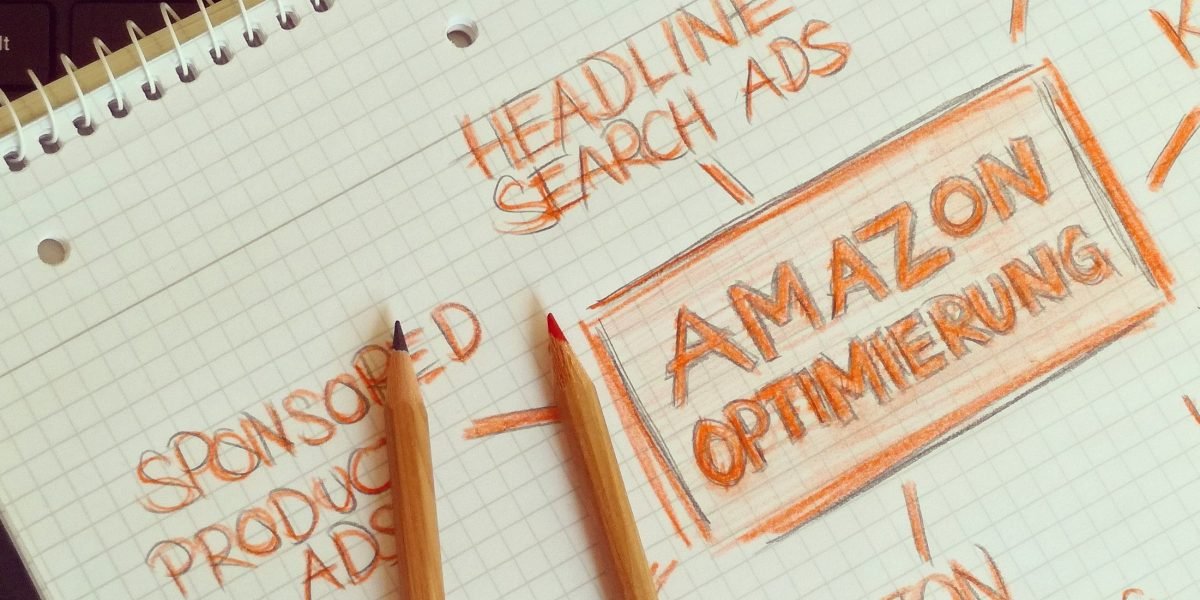 HEADLINE
SEARCH ADS
AMAZON
OPTIMIERUNG
SPONSORED
PRODUCT
ADS